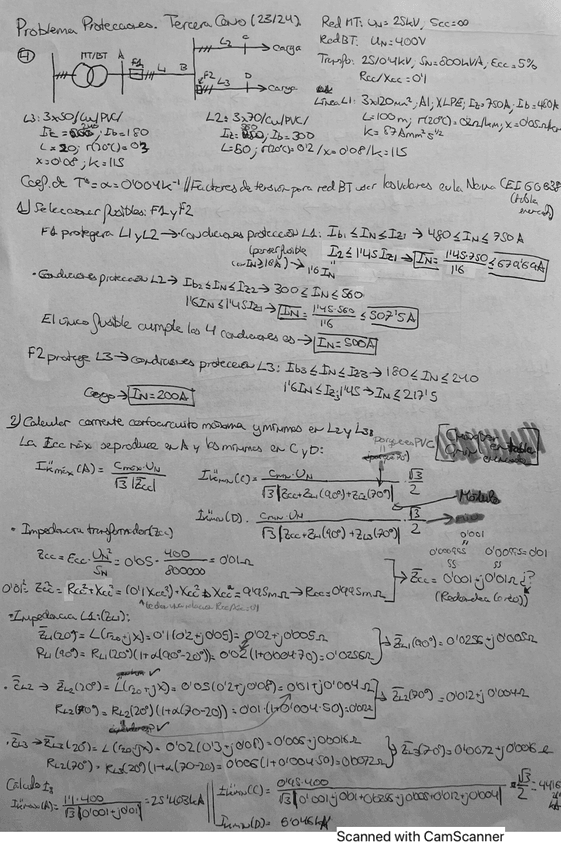 Problema Protecciones. Tercera Convo (23/24)
Red MT: UN = 25kV, Scc=∞
Red BT: UN=400V
Transfo: 25/0'4kV, SN=800kVA, Ecc=5%
Rcc/Xcc = 0'1
Línea L1: 3x120mm², Al, XLPE, Iz=750A, Ib=480A
L=100m, r(20°C)=0'2Ω/km, x=0'05Ω/km
K=87Amm²s^1/2
4
MT/BT A F1 L B
L2 C Carga
F2 L3 D Carga
L3: 3x50/Cu/PVC/
Iz = 240, Ib=180
L=20; r(20°C)=0'3
x=0'08; K=115
L2: 3x70/Cu/PVC/
Iz: 560, Ib=300
L=50; r(20°C)=0'2/x=0'08/k=115
Coef. de Tª=α=0'004K⁻¹//Factores de tensión para red BT usar los valores en la Norma CEI 60038
1) Seleccionar fusibles: F1 y F2
F1 protegerá L1 y L2 → Condiciones protección L1: Ib1 ≤ IN ≤ Iz1 → 480 ≤ IN ≤ 750 A
(por ser fusible con IN≥16A) → I2 ≤ 1'45 Iz1 → IN = 1'45·750/1'6 ≤ 679'69A
1'6 IN
· Condiciones protección L2 → Ib2 ≤ IN ≤ Iz2 → 300 ≤ IN ≤ 560
1'6IN ≤ 1'45Iz1 → IN = 1'45·560/1'6 ≤ 507'5A
El único fusible cumple las 4 condiciones es → IN = 500A
F2 protege L3 → condiciones protección L3: Ib3 ≤ IN ≤ Iz3 → 180 ≤ IN ≤ 240
1'6IN ≤ Iz3 1'45 → IN ≤ 217'5
Cargo → IN=200A
2) Calcular corriente cortocircuito máxima y mínimas en L2 y L3
La Icc máx se produce en A y las mínimas en C y D:
porque es PVC
I''kmáx(A) = Cmáx·UN/√3 |Zcc|
I''kmin(C) = Cmin·UN/√3 |Zcc+ZL1(90°)+ZL2(70°)| · √3/2
Módulo
I''kmin(D) · Cmin·UN/√3 |Zcc+ZL1(90°)+ZL3(70°)| · √3/2
· Impedancia transformador (Zcc)
Zcc = Ecc·UN²/SN = 0'05·400/800000 = 0'01Ω
0'01² Zcc² = Rcc²+Xcc² = (0'1Xcc²)+Xcc² → Xcc = 9'95mΩ → Rcc=0'995mΩ
0'001
0'000995 0'00995≈0'01
Zcc = 0'001+j0'01Ω ¿?
(Redondea (cnto))
· Impedancia L1: (ZL1)
ZL1(20°) = L(r20+jx) = 0'1(0'2+j0'05) = 0'02+j0'005Ω
RL1(90°) = RL1(20°)(1+α(90°-20°)) = 0'02(1+0'004·70) = 0'0256Ω
ZL1(90°) = 0'0256+j0'005Ω
· ZL2 → ZL2(20°) = L(r20+jx) = 0'05(0'2+j0'08) = 0'01+j0'004Ω
RL2(70°) = RL2(20°)(1+α(70-20)) = 0'01·(1+0'004·50) = 0'012
ZL2(70°) = 0'012+j0'004Ω
· ZL3 → ZL3(20°) = L(r20+jx) = 0'02(0'3+j0'08) = 0'006+j0'0016Ω
RL2(70°) = RL2(20°)(1+α(70-20)) = 0'006(1+0'004·50) = 0'0072Ω
ZL3(70°) = 0'0072+j0'0016Ω
Cálculo Ik
I''kmáx(A) = 1'1·400/√3|0'001+j0'01| = 25'403kA
I''kmin(C) = 0'95·400/√3|0'001+j0'01+0'0256+j0'005+0'012+j0'004| · √3/2 = 4'416 kA
I''kmin(D) = 5'046kA
Scanned with CamScanner